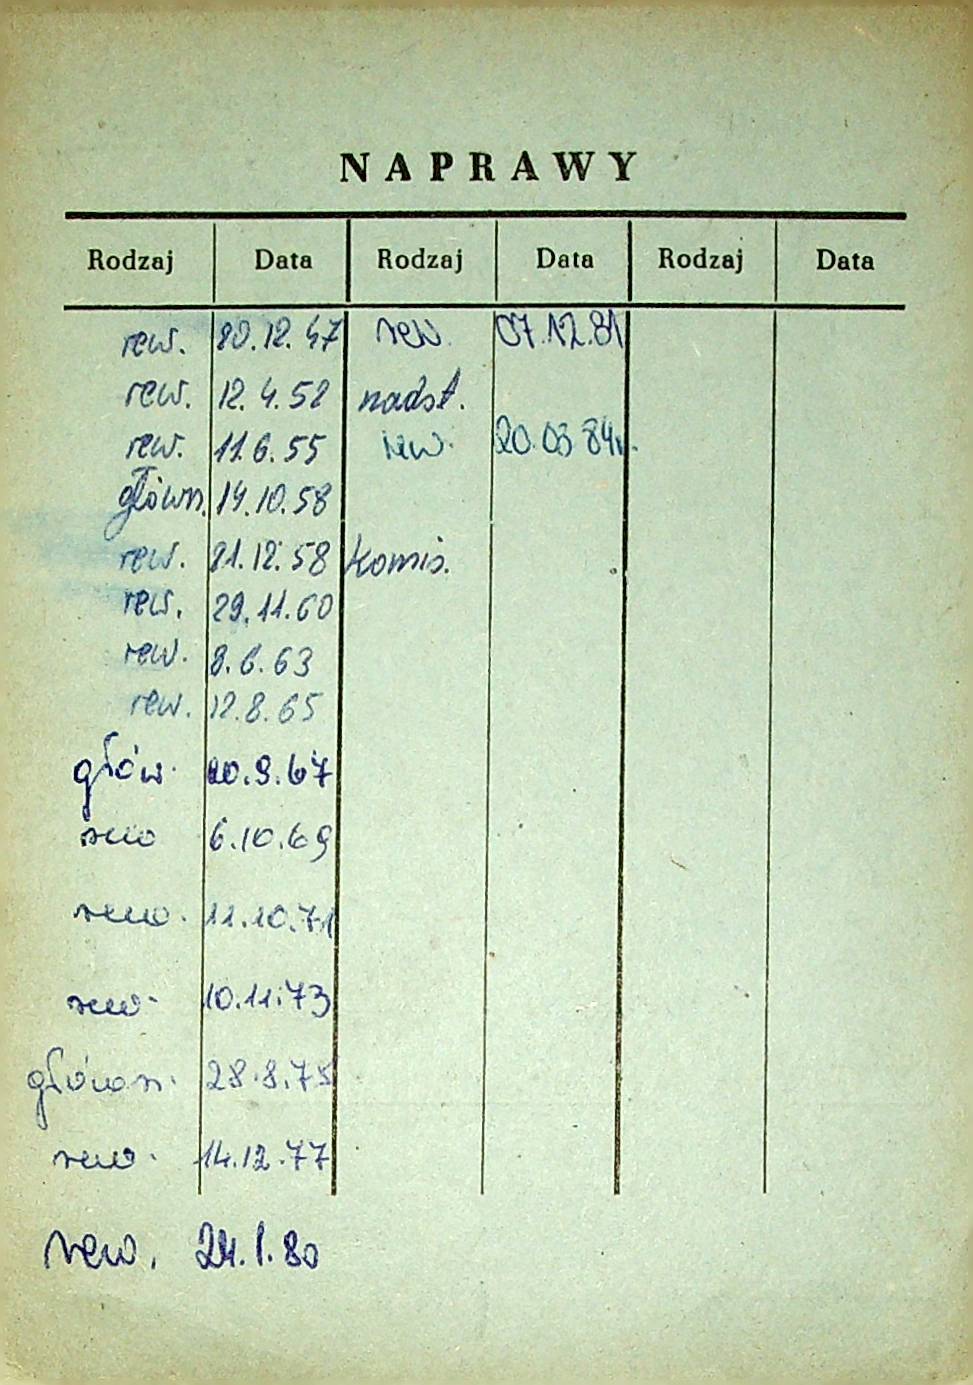 NAPRAWY
Rodzaj Data Rodzaj Data Rodzaj Data
rew. 20.12.47 rew. 07.12.81
rew. 12.4.52 nadst.
rew. 11.6.55 rew. 20.03.84r.
główn. 14.10.58
rew. 21.12.58 komis.
rew. 29.11.60
rew. 8.6.63
rew. 12.8.65
głów. 20.9.67
rew 6.10.69
rew. 11.10.71
rew. 10.11.73
główn. 28.8.75
rew. 14.12.77
rew. 24.1.80